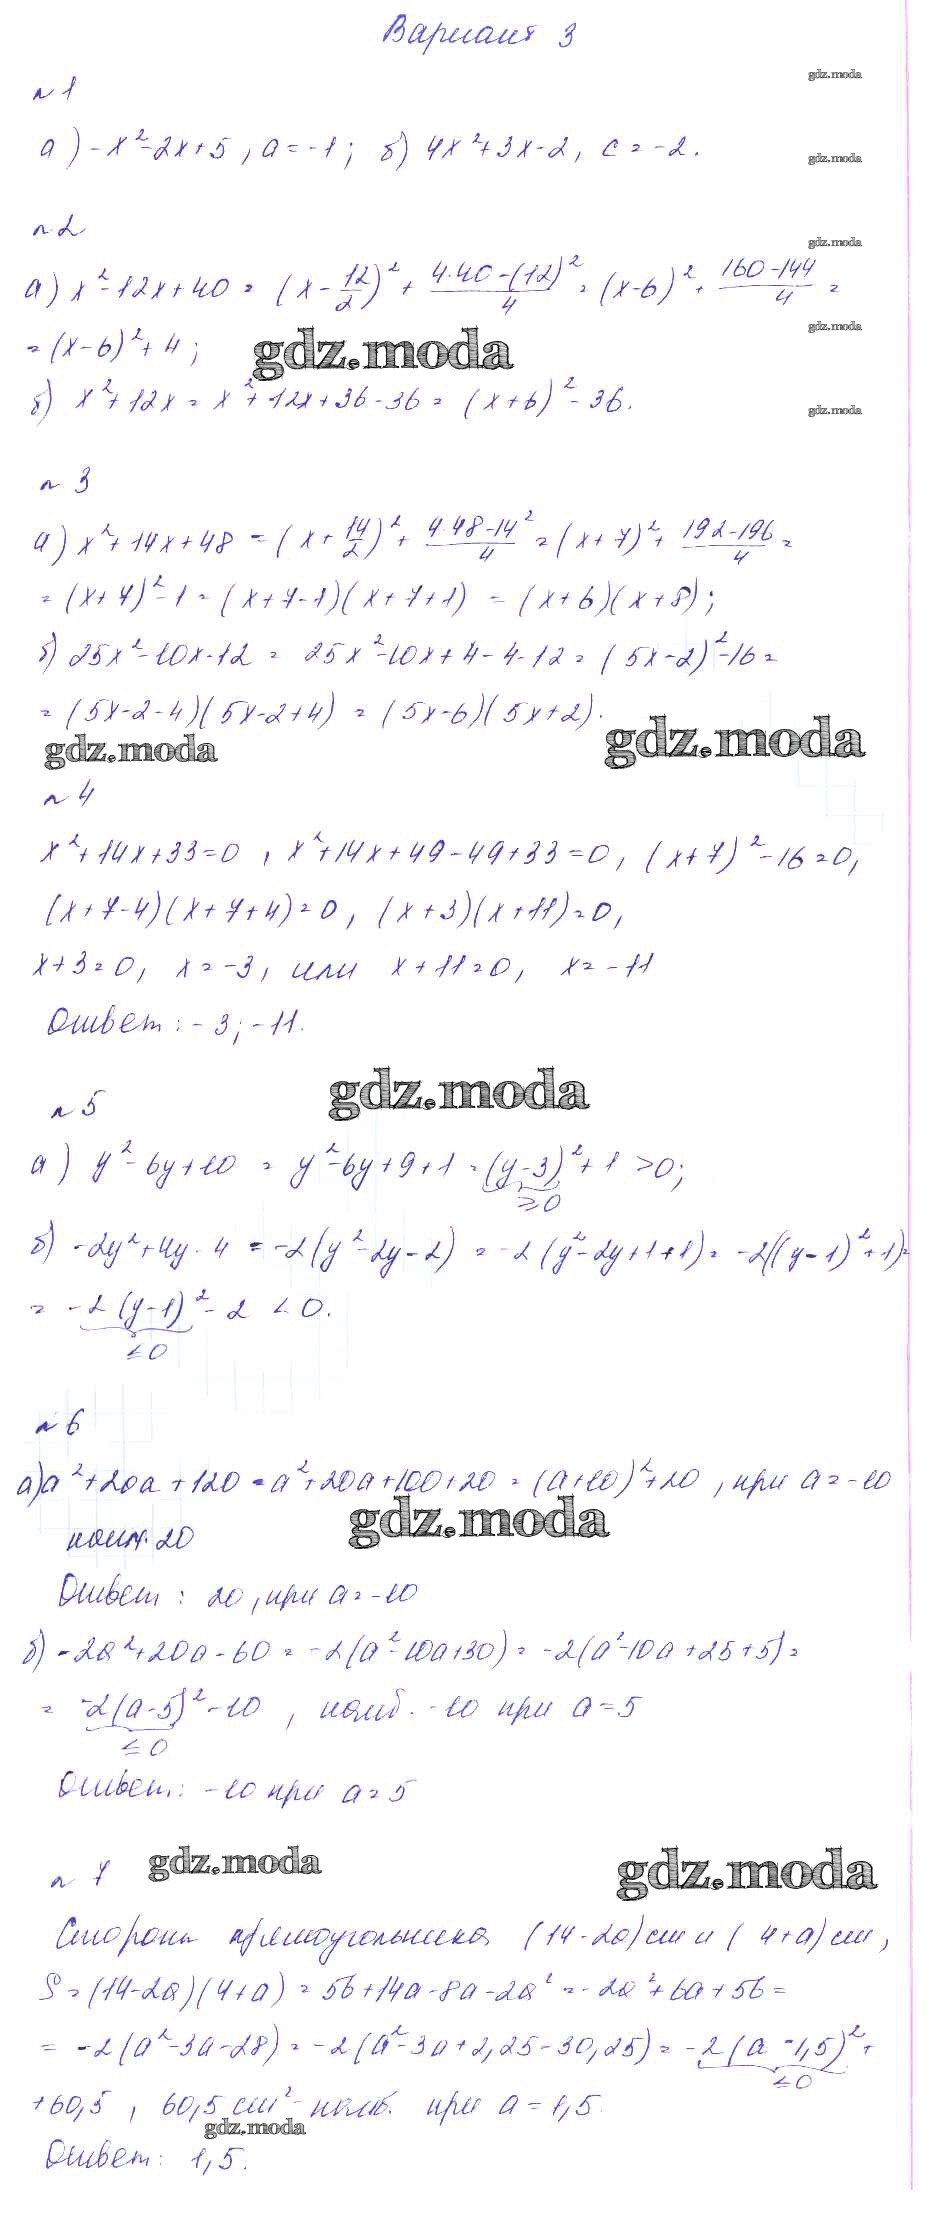 Вариант 3
gdz.moda
№1
а) -x²-2x+5, a=-1; б) 4x²+3x-2, c=-2.
gdz.moda
№2
gdz.moda
а) x²-12x+40 = (x-12/2)² + (4·40-(12)²)/4 = (x-6)² + (160-144)/4 =
gdz.moda
= (x-6)²+4;
gdz.moda
б) x²+12x = x²+12x+36-36 = (x+6)²-36.
gdz.moda
№3
а) x²+14x+48 = (x+14/2)² + (4·48-14²)/4 = (x+7)² + (192-196)/4 =
= (x+7)²-1 = (x+7-1)(x+7+1) = (x+6)(x+8);
б) 25x²-10x-12 = 25x²-10x+4-4-12 = (5x-2)²-16 =
= (5x-2-4)(5x-2+4) = (5x-6)(5x+2).
gdz.moda
gdz.moda
№4
x²+14x+33=0, x²+14x+49-49+33=0, (x+7)²-16=0,
(x+7-4)(x+7+4)=0, (x+3)(x+11)=0,
x+3=0, x=-3, или x+11=0, x=-11
Ответ: -3; -11.
gdz.moda
№5
а) y²-6y+10 = y²-6y+9+1 = (y-3)²+1 >0;
≥0
б) -2y²+4y-4 = -2(y²-2y-2) = -2(y²-2y+1+1) = -2((y-1)²+1)=
= -2(y-1)²-2 <0.
≤0
№6
а) a²+20a+120 = a²+20a+100+20 = (a+10)²+20, при a=-10
наим. 20
gdz.moda
Ответ: 20, при a=-10
б) -2a²+20a-60 = -2(a²-10a+30) = -2(a²-10a+25+5) =
= -2(a-5)²-10, наиб. -10 при a=5
≤0
Ответ: -10 при a=5
№7
gdz.moda
gdz.moda
Стороны прямоугольника (14-2a) см и (4+a) см,
S=(14-2a)(4+a) = 56+14a-8a-2a² = -2a²+6a+56 =
= -2(a²-3a-28) = -2(a²-3a+2,25-30,25) = -2(a-1,5)²+
≤0
+60,5, 60,5 см² - наиб. при a=1,5.
gdz.moda
Ответ: 1,5.